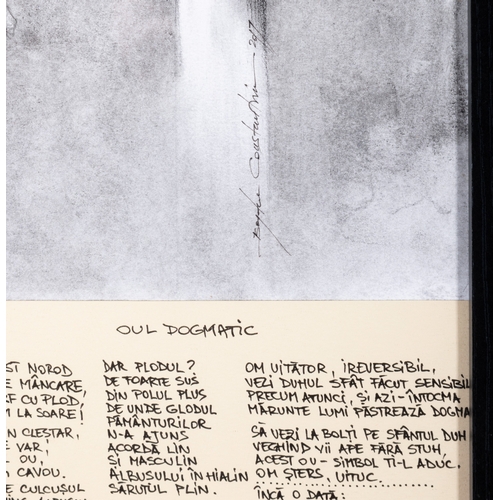 Constantin 2017
OUL DOGMATIC
ST NOROD
E MÂNCARE,
CU PLOD,
LA SOARE!
N CLEȘTAR,
VAR;
OU,
CAVOU.
E CULCUȘUL
DAR PLODUL?
DE FOARTE SUS
DIN POLUL PLUS
DE UNDE GLODUL
PĂMÂNTURILOR
N-A AJUNS
ACORDĂ LIN
ȘI MASCULIN
ALBUSULUI ÎN HIALIN
SĂRUTUL PLIN.
OM UITĂTOR, IREVERSIBIL,
VEZI DUHUL SFÂT FĂCUT SENSIBIL
PRECUM ATUNCI, ȘI AZI-ÎNTOCMA
MĂRUNTE LUMI PĂSTREAZĂ DOGMA
SĂ VEZI LA BOLȚI PE SFÂNTUL DUH
VEGHIND VII APE FĂRĂ STUH,
ACEST OU-SIMBOL TI-L ADUC,
OM ȘTERS, UITUC.
ÎNCĂ O DATĂ